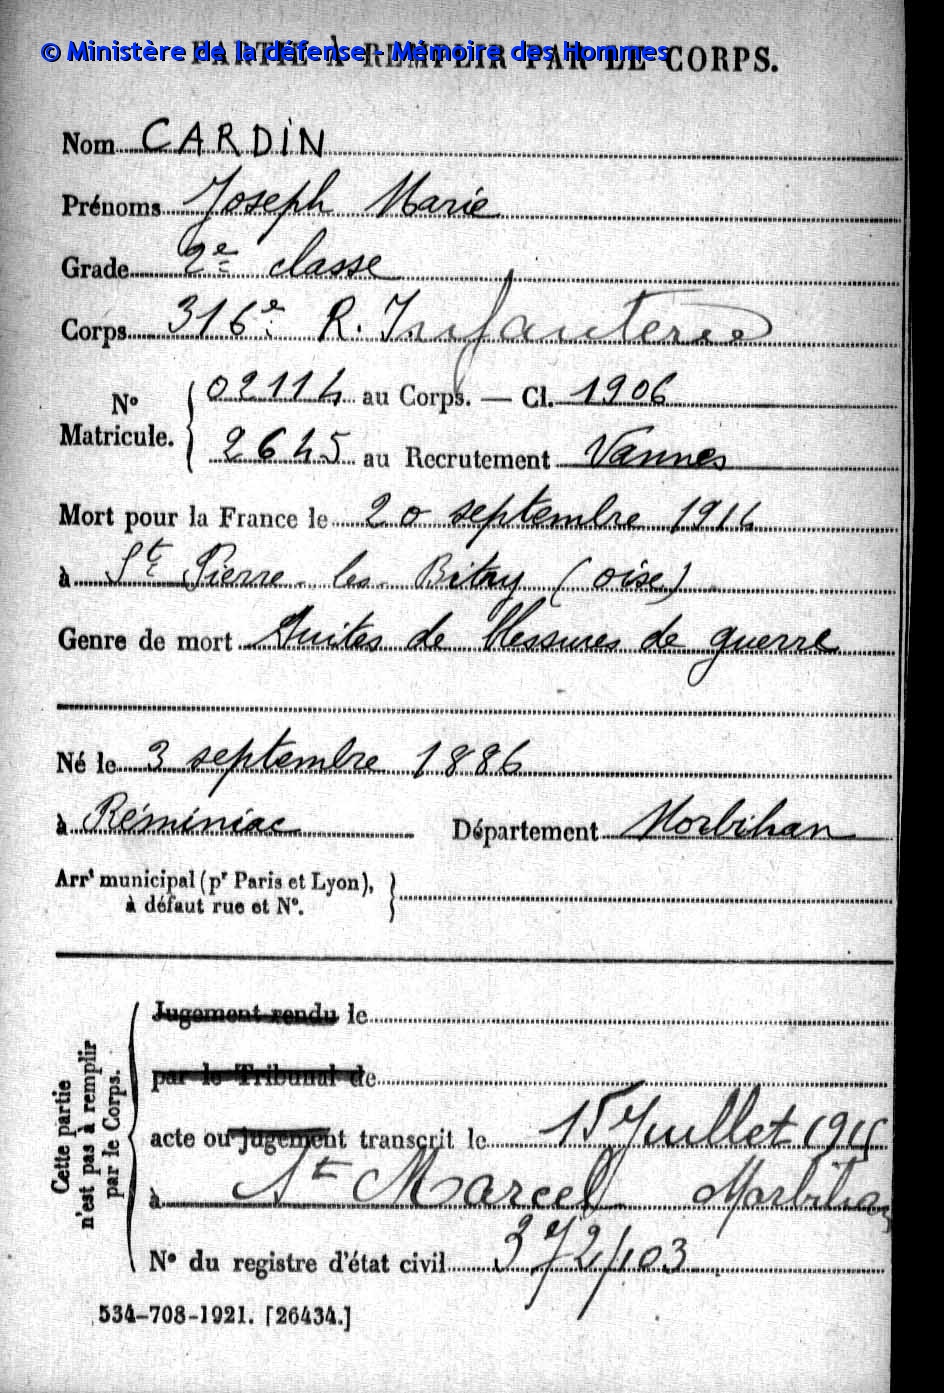 © Ministère de la défense - Mémoire des Hommes
PARTIE À REMPLIR PAR LE CORPS.
Nom CARDIN
Prénoms Joseph Marie
Grade 2e classe
Corps 316e R. Infanterie
No Matricule. { 02114 au Corps. — Cl. 1906
2645 au Recrutement Vannes
Mort pour la France le 20 septembre 1914
à St Pierre-les-Bitry (oise)
Genre de mort Suites de blessures de guerre
Né le 3 septembre 1886
à Réminiac Département Morbihan
Arrt municipal (pr Paris et Lyon),
à défaut rue et No.
Cette partie
n'est pas à remplir
par le Corps.
Jugement rendu le
par le Tribunal de
acte ou jugement transcrit le 15 Juillet 1915
à St Marcel Morbihan
No du registre d'état civil 372/103
534-708-1921. [26434.]